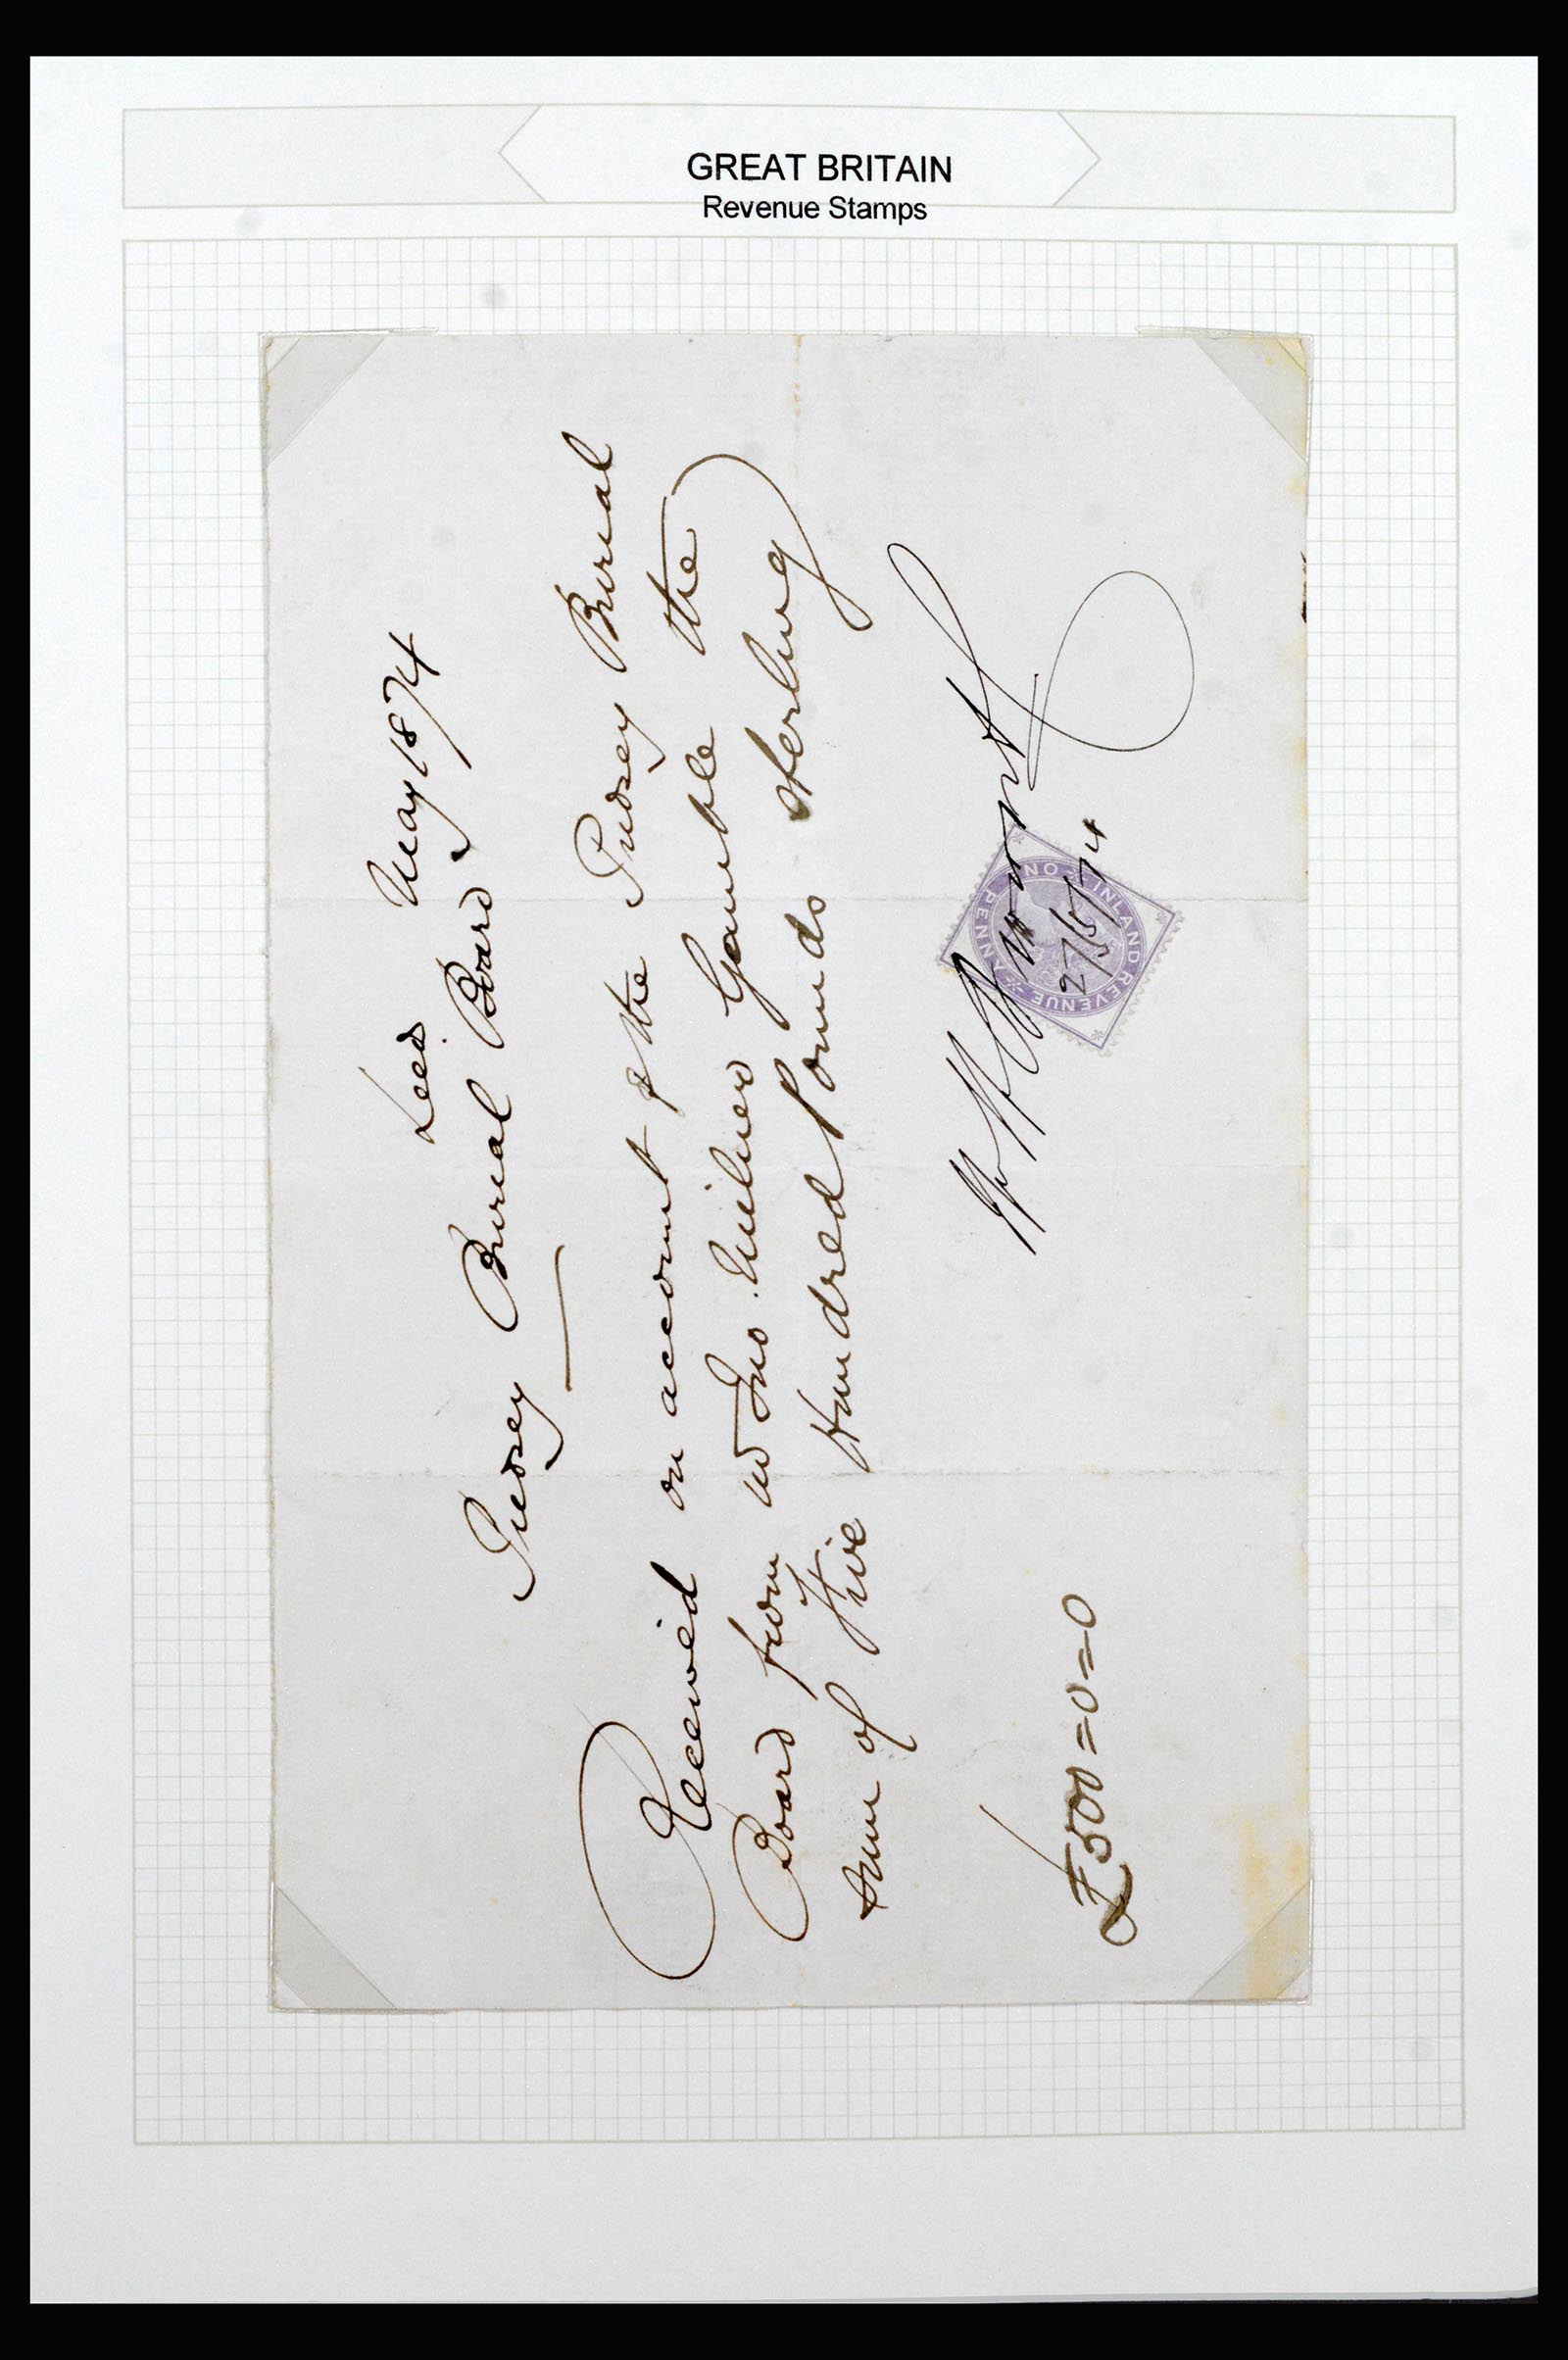 GREAT BRITAIN
Revenue Stamps
Leeds May 1874
Pudsey Burial Board
Received on account of the Pudsey Burial
Board from Jno. Milner Gamble the
sum of Five Hundred Pounds sterling
£500=0=0
INLAND REVENUE
ONE PENNY
27/5/74